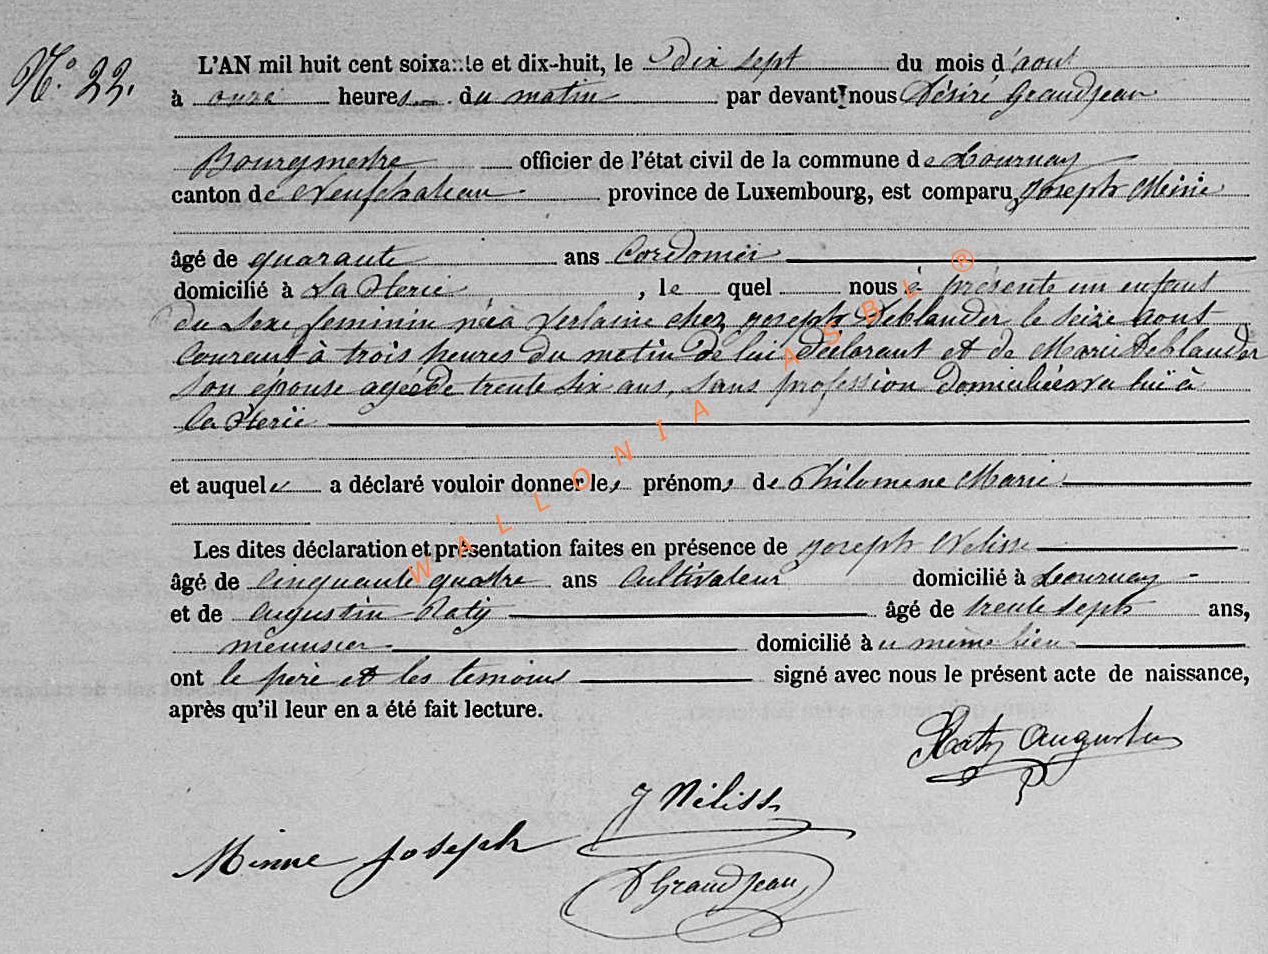 N° 22.
L'AN mil huit cent soixante et dix-huit, le dix sept du mois d'aout
à onze heures du matin par devant nous Désiré Grandjean
Bourgmestre officier de l'état civil de la commune de Tournay
canton de Neufchateau province de Luxembourg, est comparu Joseph
âgé de quarante ans Cordonier
domicilié à La Herie, le quel nous à présente un enfant
du sexe feminin né à Verlaine chez joseph Deblander le seize aout
courant à trois heures du matin de lui déclarant et de Marie Deblander
son épouse agée de trente six ans, sans profession domiciliée à
la Herie
et auquel a déclaré vouloir donner les prénoms de Philomene Marie
Les dites déclaration et présentation faites en présence de joseph Nelisse
âgé de cinquante quatre ans cultivateur domicilié à Tournay
et de augustin Raty âgé de trente sept ans,
domicilié au même lieu
ont le père et les temoins signé avec nous le présent acte de naissance,
après qu'il leur en a été fait lecture.
Raty Augustin
J Néliss
Minne Joseph
D Grandjean
WALLONIA ASBL ®